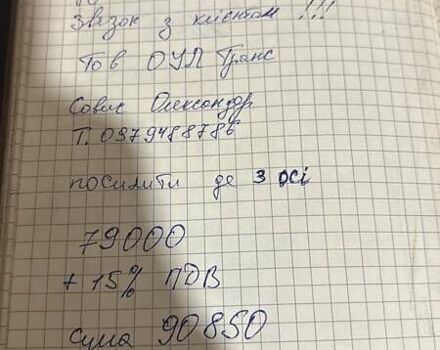 Звязок з клієнтом !!!
Тов ОУЛ Транс
Совис Олександор
Т. 0979488786
посилити де 3 осі
79000
+ 15% ПДВ
сума 90850